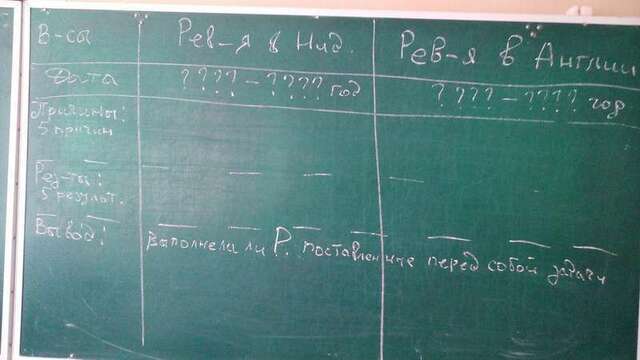 В-сы Рев-я в Нид. Рев-я в Англии
Дата ????-???? год ????-???? год
Причины:
5 причин
Рез-ты:
5 результ.
Вывод: Выполнела ли Р. поставленные перед собой задачи